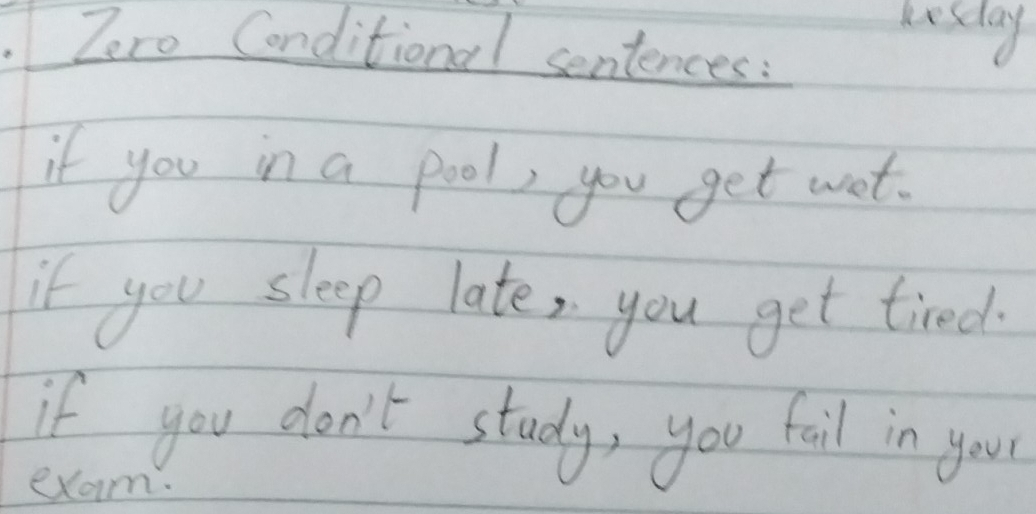 . Zero Conditional sentences:
if you in a pool, you get wet.
if you sleep late, you get tired.
if you don't study, you fail in your
exam.